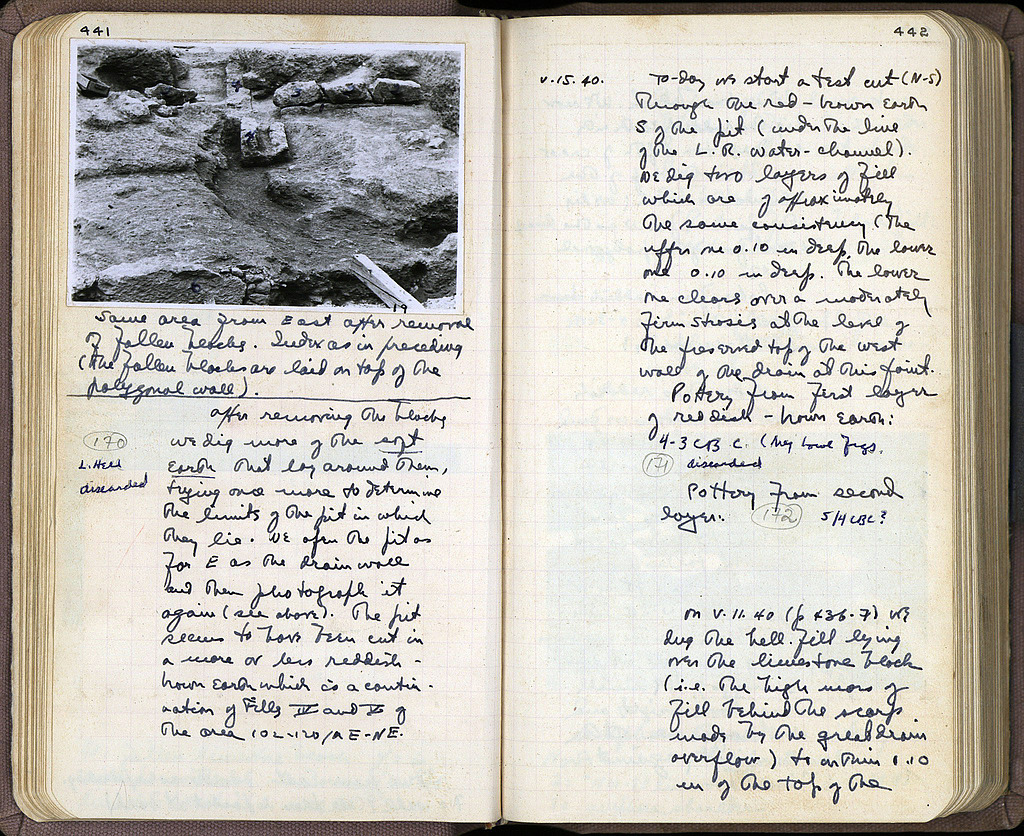 441
19
Same area from East after removal
of fallen blocks. Index as in preceding
(The fallen blocks are laid on top of the
polygonal wall).
after removing the blocks
170
we dig more of the soft
L. Hell
discarded
earth that lay around them,
trying once more to determine
the limits of the pit in which
they lie. We open the pit as
far E as the drain wall
and then photograph it
again (see above). The pit
seems to have been cut in
a more or less reddish-
brown earth which is a contin-
uation of Fills IV and V of
the area 102-120/A E-NE.
442
V.15.40.
To-day we start a test cut (N-S)
through the red-brown earth
S of the pit (under the line
of the L.R. water-channel).
We dig two layers of fill
which are of approximately
the same consistency (the
upper one 0.10 m deep, the lower
one 0.10 m deep. The lower
one clears over a moderately
firm strosis at the level of
the preserved top of the west
wall of the drain at this point.
Pottery from first layer
of reddish-brown earth:
4-3 C B.C. (Meg bowl frgs.
171
discarded
Pottery from second
layer:
172
5/4 C BC?
On V.11.40 (p 436-7) we
dug the hell. fill lying
over the limestone block
(i.e. the high mass of
fill behind the scarp
made by the great drain
overflow) to within 0.10
m of the top of the